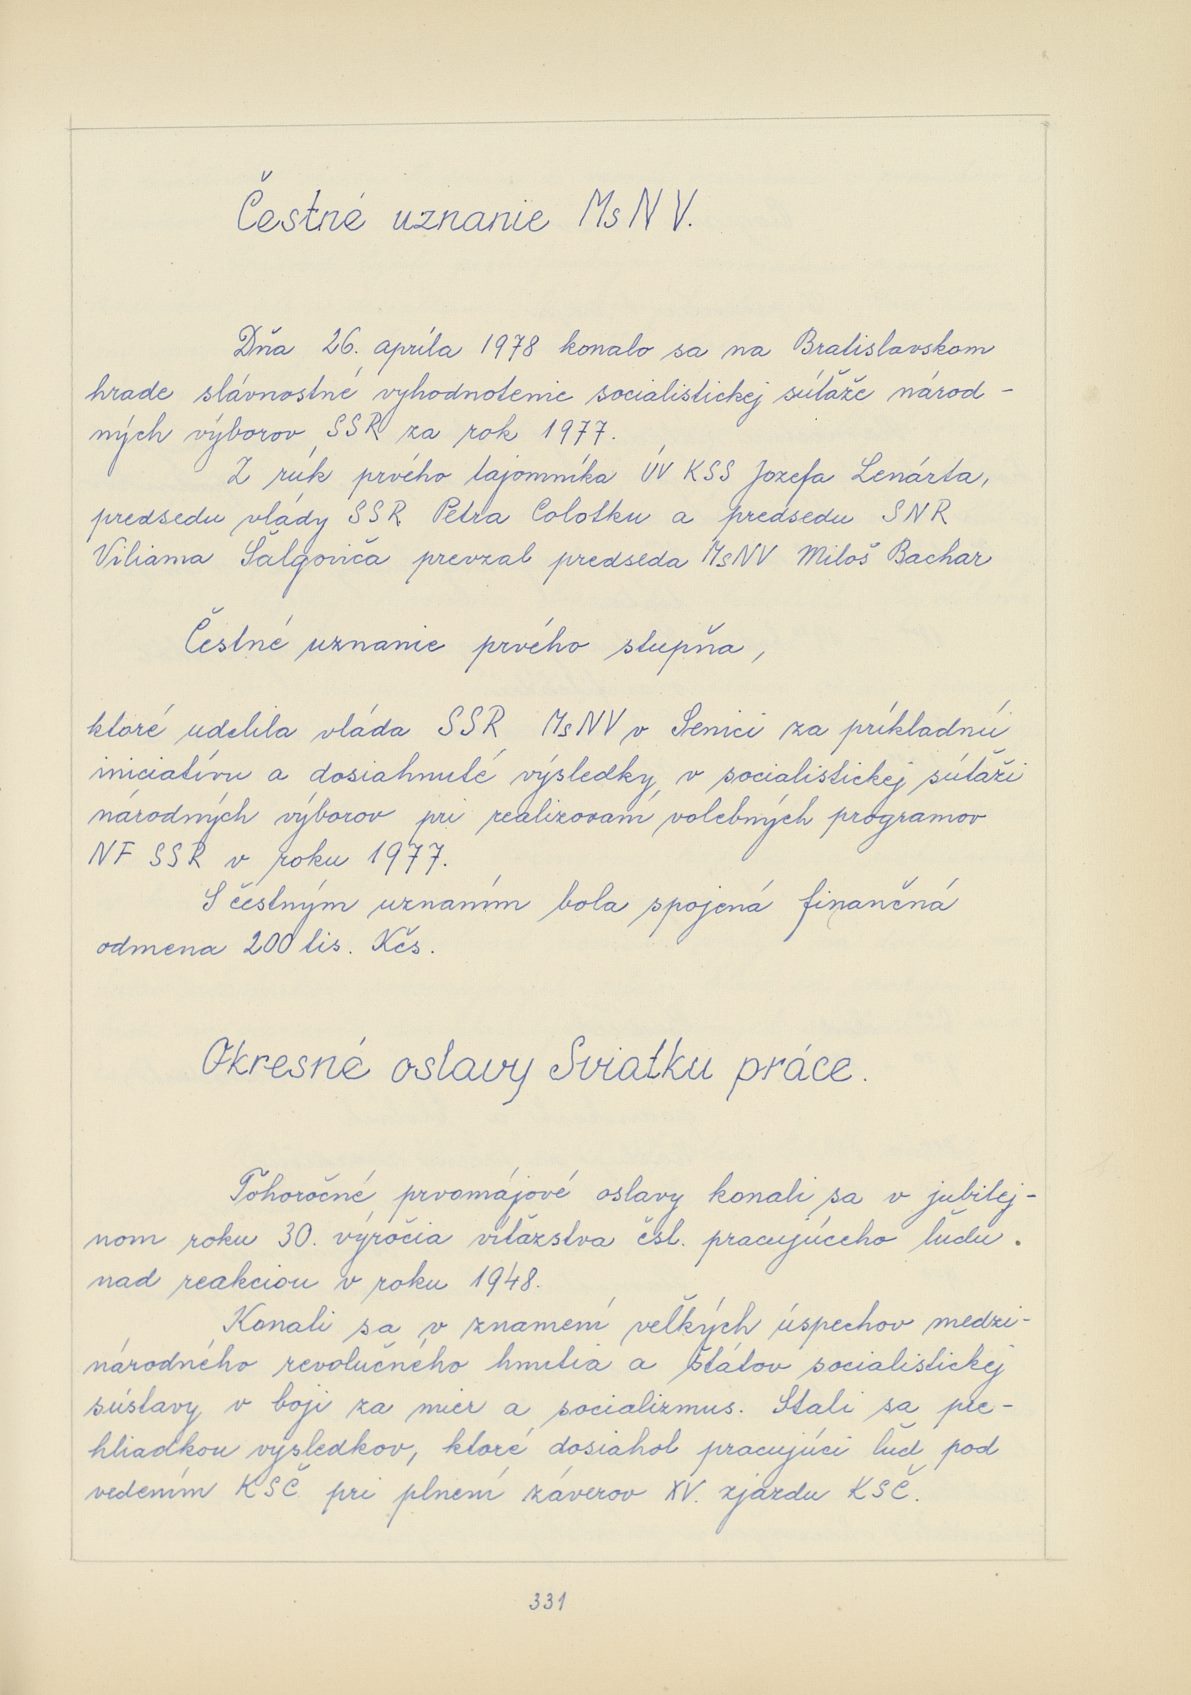 Čestné uznanie MsNV.
Dňa 26. apríla 1978 konalo sa na Bratislavskom
hrade slávnostné vyhodnotenie socialistickej súťaže národ-
ných výborov SSR za rok 1977.
Z rúk prvého tajomníka ÚV KSS Jozefa Lenárta,
predsedu vlády SSR Petra Colotku a predsedu SNR
Viliama Šalgoviča prevzal predseda MsNV Miloš Bachar
Čestné uznanie prvého stupňa,
ktoré udelila vláda SSR MsNV v Senici za príkladnú
iniciatívu a dosiahnuté výsledky v socialistickej súťaži
národných výborov pri realizovaní volebných programov
NF SSR v roku 1977.
S čestným uznaním bola spojená finančná
odmena 200 tis. Kčs.
Okresné oslavy Sviatku práce.
Tohoročné prvomájové oslavy konali sa v jubilej-
nom roku 30. výročia víťazstva čsl. pracujúceho ľudu.
nad reakciou v roku 1948.
Konali sa v znamení veľkých úspechov medzi-
národného revolučného hnutia a štátov socialistickej
sústavy v boji za mier a socializmus. Stali sa pre-
hliadkou výsledkov, ktoré dosiahol pracujúci ľud pod
vedením KSČ pri plnení záverov XV. zjazdu KSČ.
331